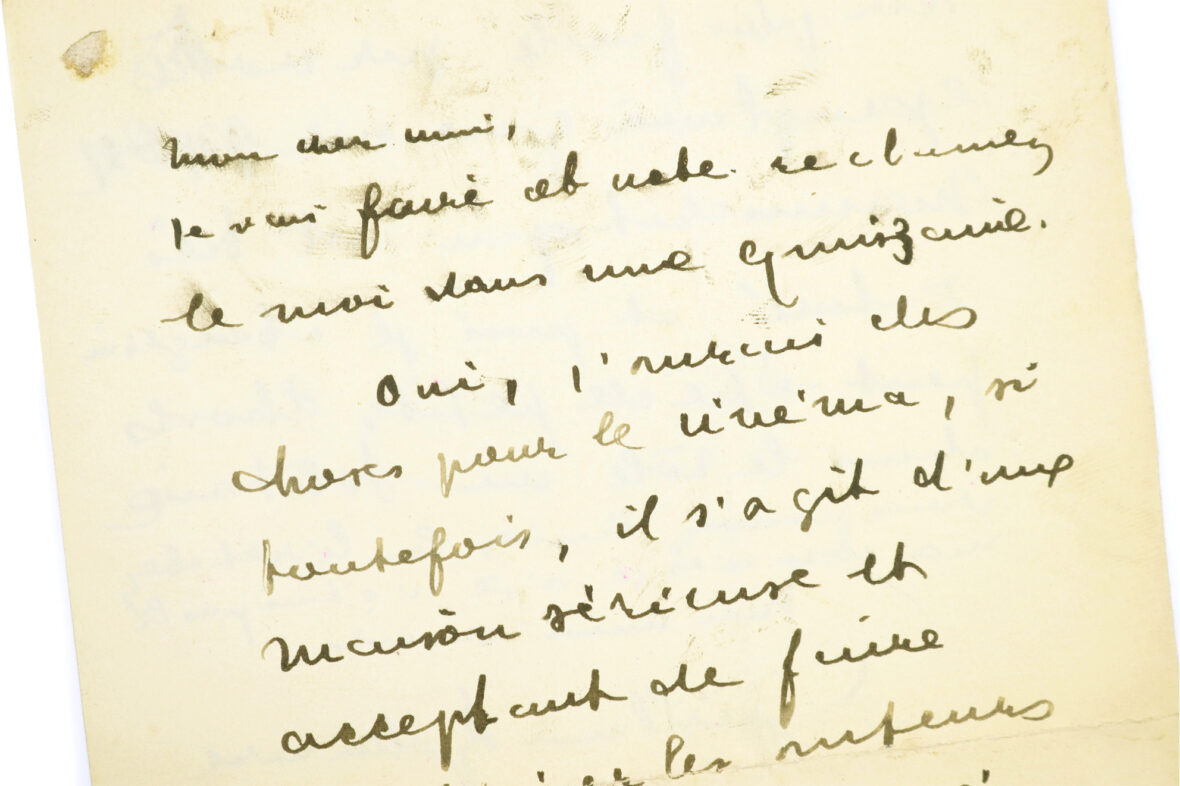 Mon cher ami,
je vais faire cet acte. reclamez
le moi dans une quinzaine.
Oui, j'aurai des
choses pour le cinéma, si
toutefois, il s'agit d'une
maison sérieuse et
acceptant de faire
les auteurs